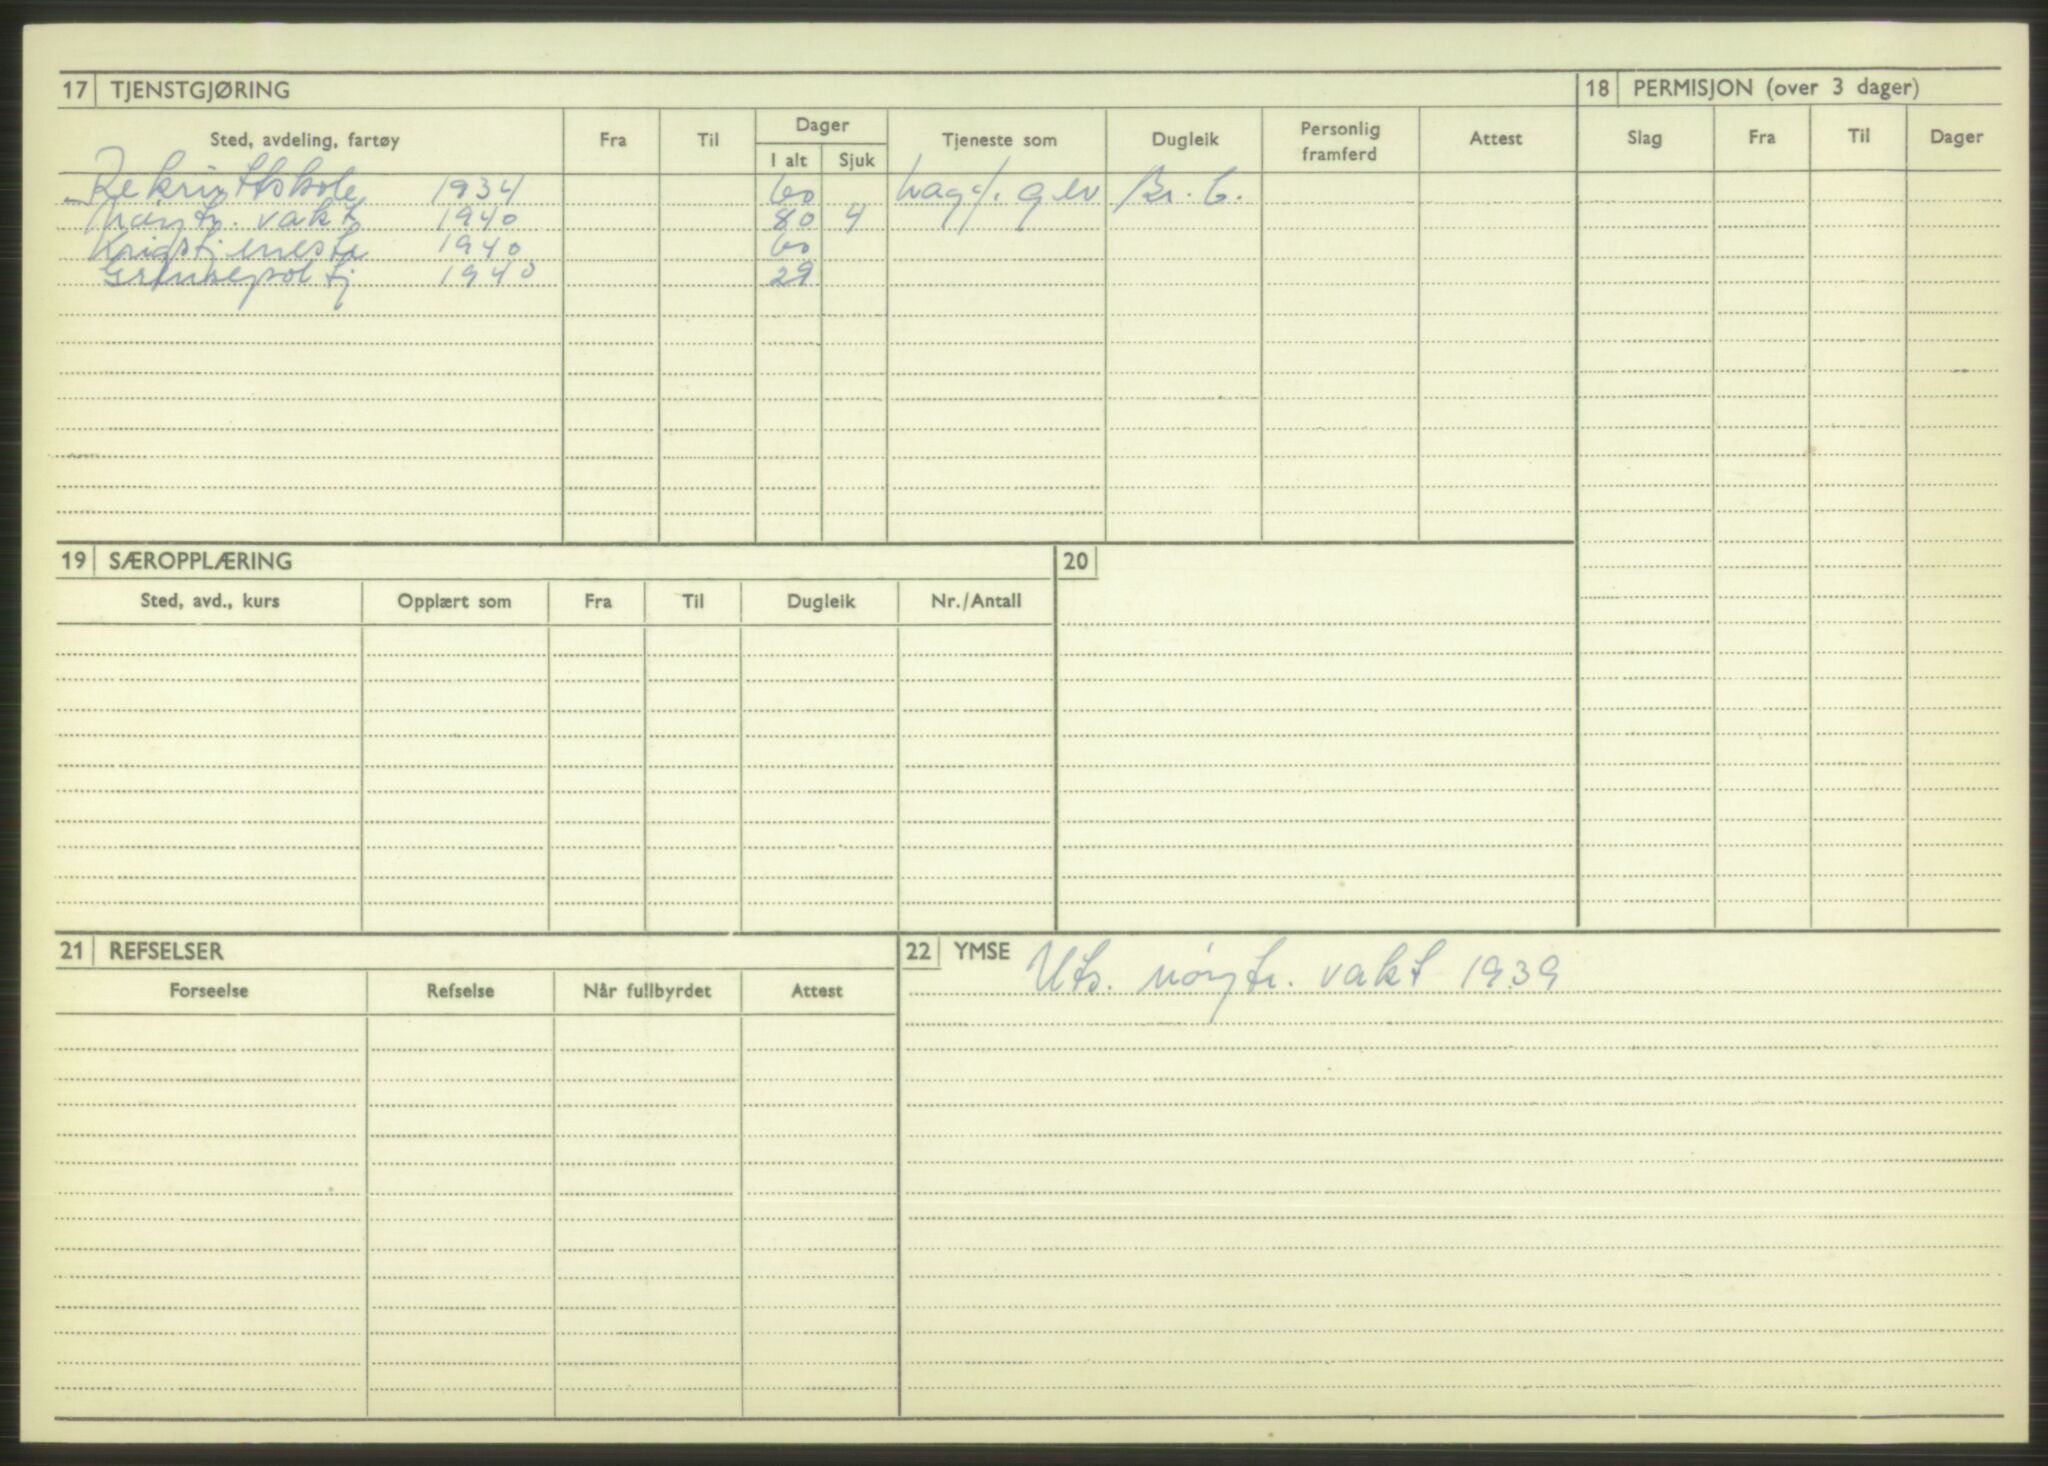 17 TJENSTGJØRING
Sted, avdeling, fartøy Fra Til Dager I alt Sjuk Tjeneste som Dugleik Personlig framferd Attest
Rekruttskole 1934 60 Lagf. gev Br. G.
Nøytr. vakt 1940 80 4
Krigstjeneste 1940 60
Grensepoltj 1940 29
18 PERMISJON (over 3 dager)
Slag Fra Til Dager
19 SÆROPPLÆRING
Sted, avd., kurs Opplært som Fra Til Dugleik Nr./Antall
20
21 REFSELSER
Forseelse Refselse Når fullbyrdet Attest
22 YMSE Uts. nøytr. vakt 1939